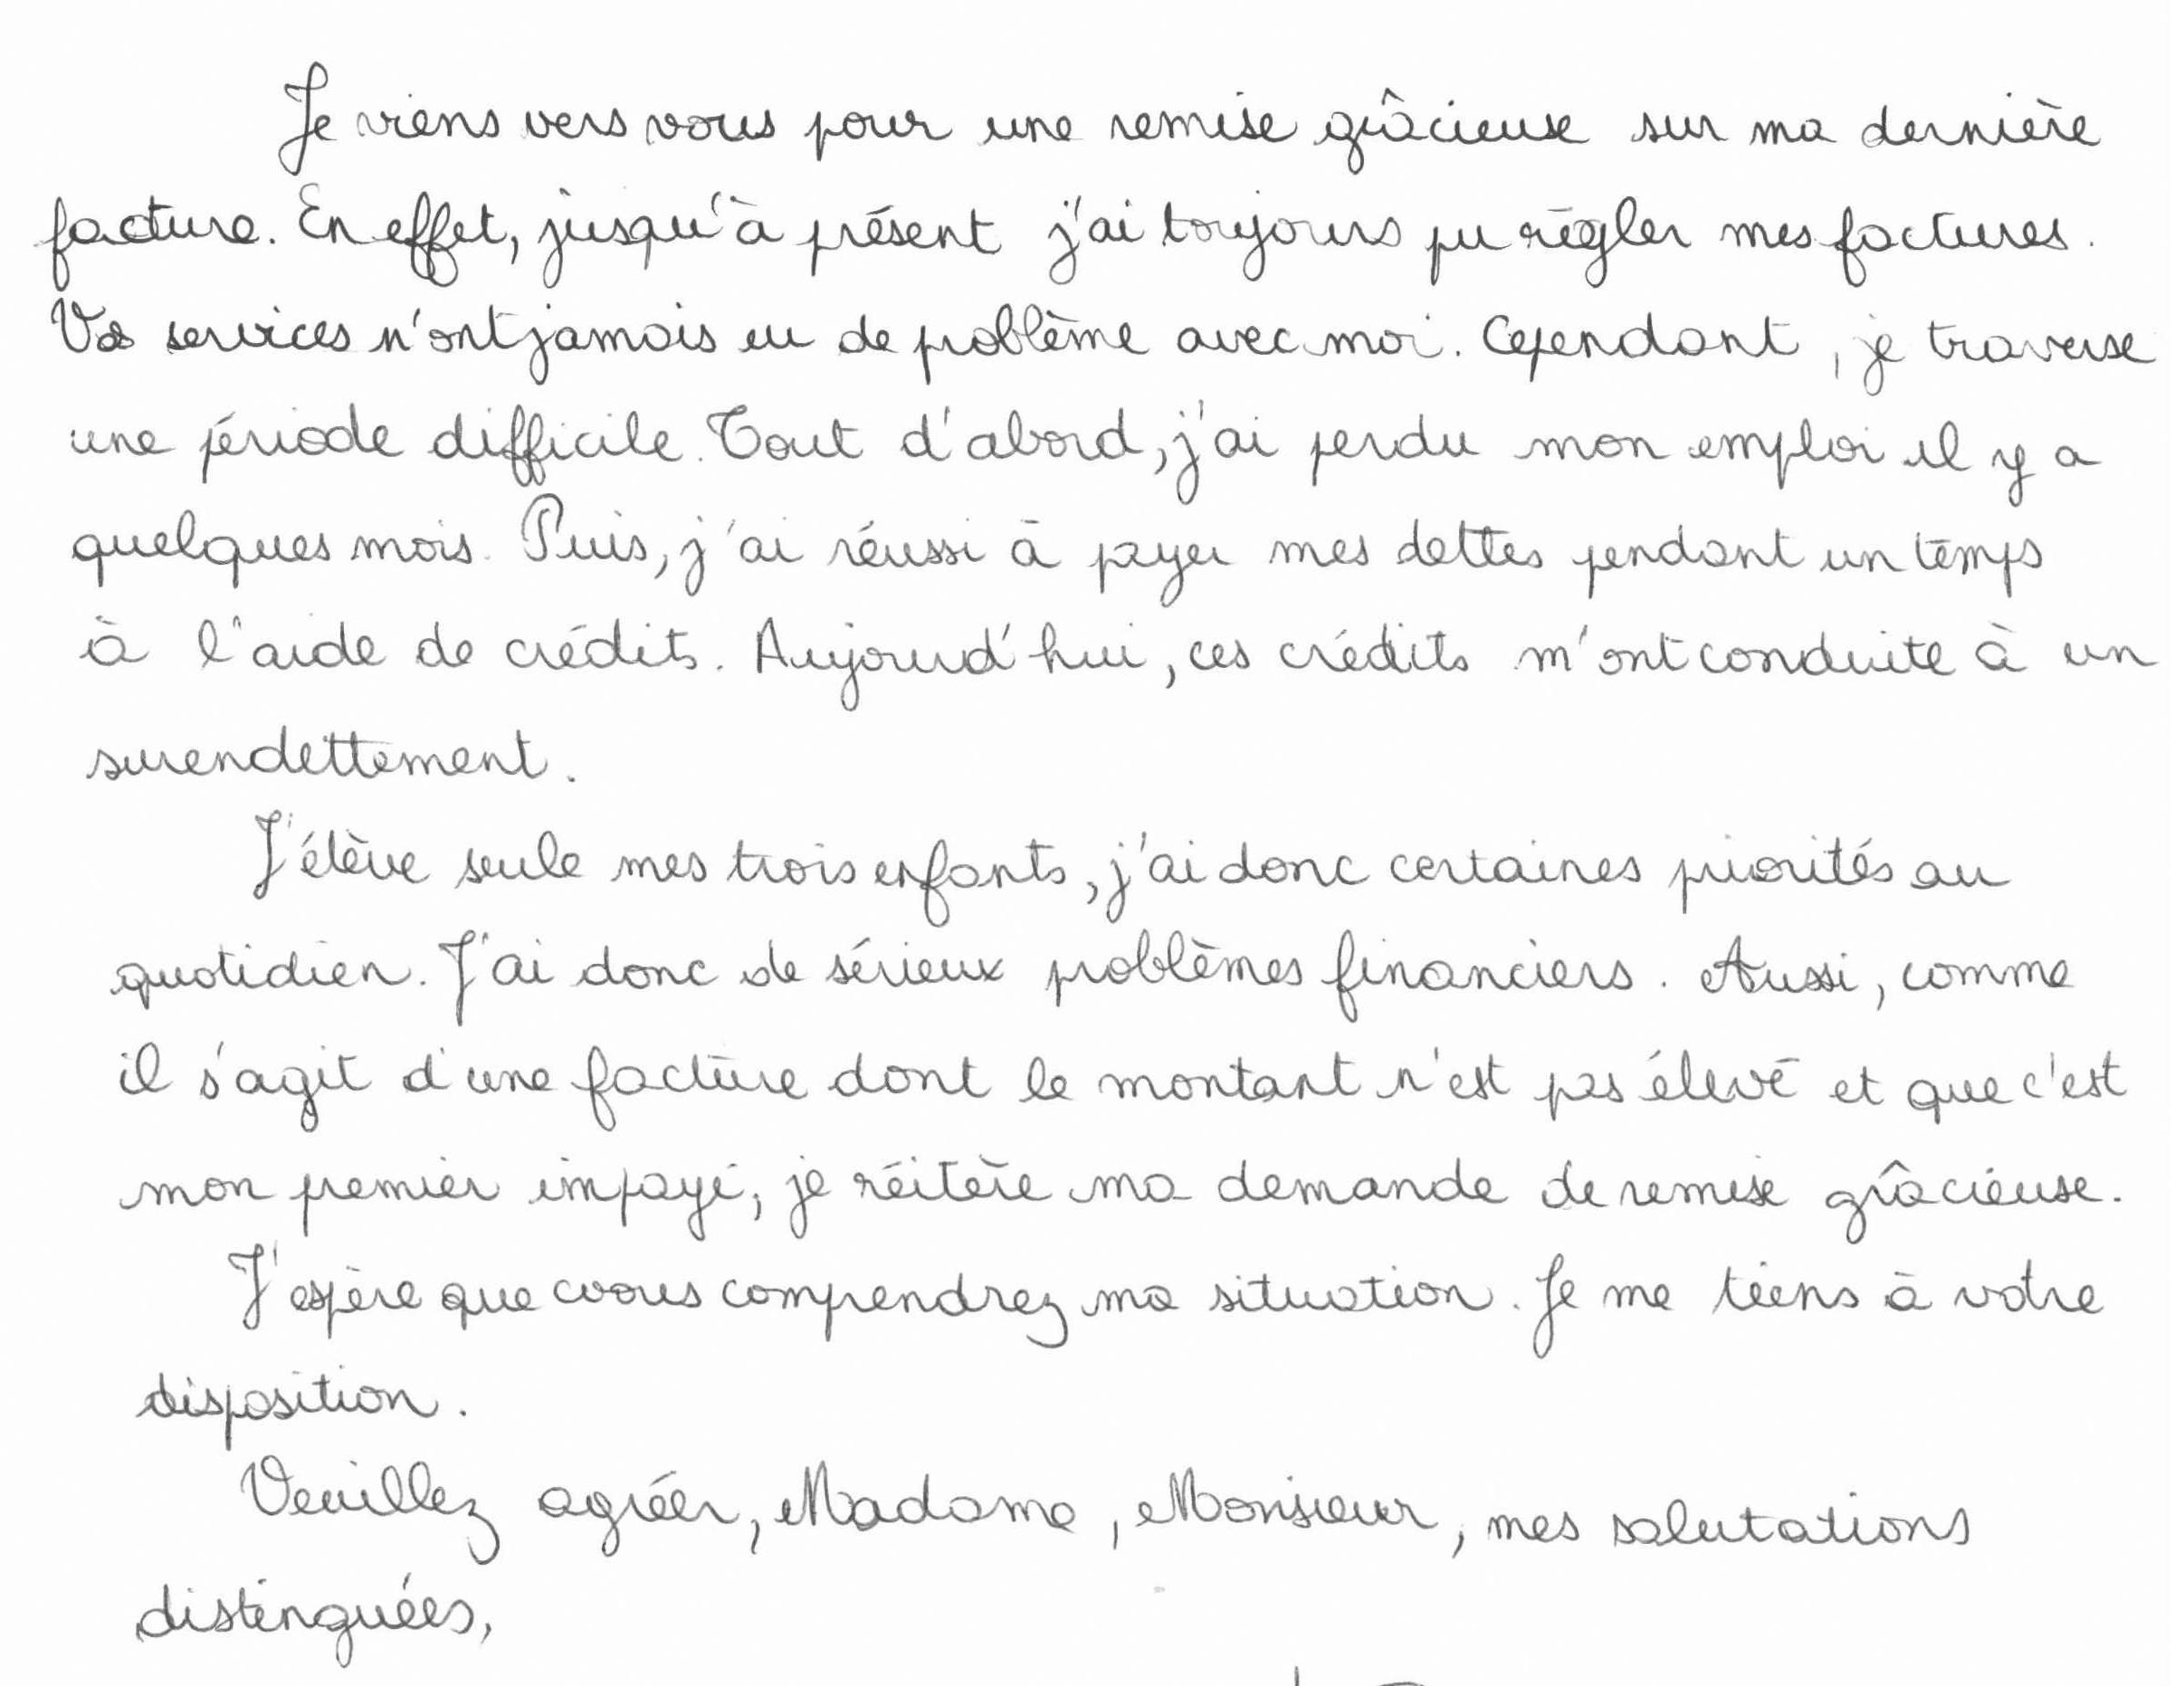 Je viens vers vous pour une remise grâcieuse sur ma dernière
facture. En effet, jusqu'à présent j'ai toujours pu régler mes factures.
Vos services n'ont jamais eu de problème avec moi. Cependant, je traverse
une période difficile. Tout d'abord, j'ai perdu mon emploi il y a
quelques mois. Puis, j'ai réussi à payer mes dettes pendant un temps
à l'aide de crédits. Aujourd'hui, ces crédits m'ont conduite à un
surendettement.
J'élève seule mes trois enfants, j'ai donc certaines priorités au
quotidien. J'ai donc de sérieux problèmes financiers. Aussi, comme
il s'agit d'une facture dont le montant n'est pas élevé et que c'est
mon premier impayé, je réitère ma demande de remise grâcieuse.
J'espère que vous comprendrez ma situation. Je me tiens à votre
disposition.
Veuillez agréer, Madame, Monsieur, mes salutations
distinguées,